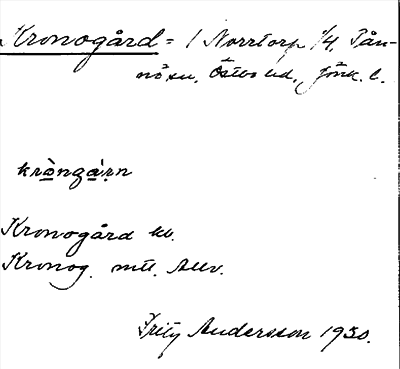 Kronogård = 1 Norrtorp 1/4, Tån-
nö sn, Östbo hd, Jönk. l.
kròngàṛn
Kronogård kb.
Kronog. mtl. Allv.
Fritz Andersson 1930.